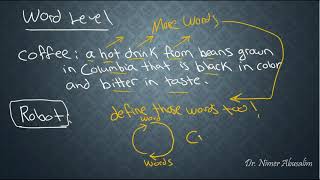 Word Level
More Words
coffee: a hot drink from beans grown
in Columbia that is black in color
and bitter in taste.
Robot:
define those words too!
word
words
Dr. Nimer Abusalim